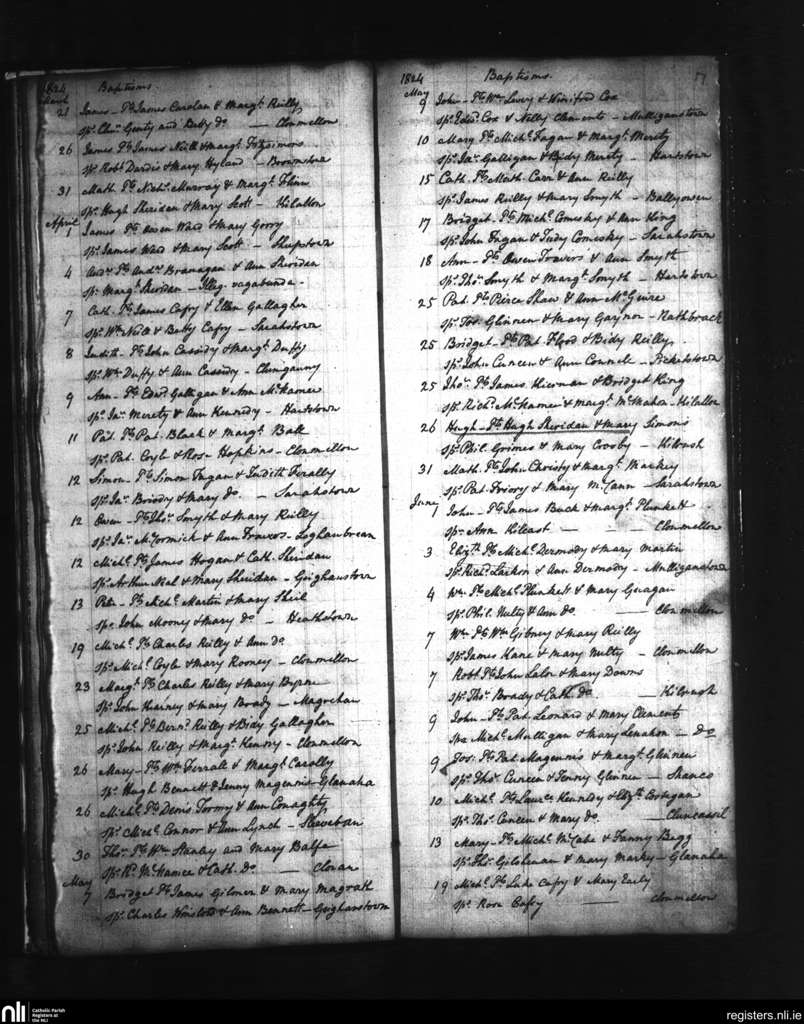 1824 Baptisms.
March
21 James - Ps James Carolan & Margt. Reilly
sps. Chas. Genty and Betty do — Clonmellon
26 James Ps James Neill & Margt. Fitzsimons
sps. Robt Dardis & Mary Hyland - Brownstown
31 Math. Ps Michl. Murray & Margt. Flinn
sps. Hugh Sheridan & Mary Scott - Kilallon
April
1 James Ps Owen Ward & Mary Gorry
sps. James Ward & Mary Scott - Sheepstown
4 Andw Ps Andw. Branagan & Ann Sheridan
sps. Margt. Sheridan - Illeg. vagabunda -
7 Cath. Ps James Cafry & Ellen Gallagher
sps. Wm Neill & Betty Cafry - Sarahstown
8 Judith - Ps John Cassidy & Margt. Duffy
sps. Wm Duffy & Ann Cassidy -
9 Ann - Ps Edwd. Galligan & Ann McNamee
sps. Jas. Merety & Ann Kennedy - Hartstown
11 Pat. Ps Pat. Black & Margt. Ball
sps. Pat. Coyle & Rose Hopkins - Clonmellon
12 Simon - Ps Simon Fagan & Judith Ferally
sps. Jas. Briody & Mary do. - Sarahstown
12 Owen - Ps Thos. Smyth & Mary Reilly
sps. Jas. McCormick & Ann Travers - Loghanbrean
12 Michl. Ps James Hogan & Cath. Sheridan
sps. Arthur Neal & Mary Sheridan - Geighanstown
13 Peter - Ps Michl. Martin & Mary Sheil
sps. John Mooney & Mary do - Heathstown
19 Michl. Ps Charles Reilly & Ann do
sps. Michl. Coyle & Mary Rooney - Clonmellon
23 Margt. Ps Charles Reilly & Mary Byrne
sps. John Harney & Mary Brady -
25 Michl. Ps Bernd Reilly & Bidy Gallagher
sps. John Reilly & Margt. Kenny - Clonmellon
26 Mary - Ps Wm Ferrall & Margt. Carolly
sps. Hugh Bennett & Jenny Magennis - Glanaha
26 Michl. Ps Denis Toomy & Ann Conaghty
sps. Michl. Connor & Ann Lynch -
30 Thos. Ps Wm Stanley and Mary Balfe
sps. Rd. McNamee & Cath. do —
May
7 Bridget Ps James Gilmer & Mary Magrath
sps. Charles & Ann Bennett - Geighanstown
1824 Baptisms. 17
May
9 John - Ps Wm Lowry & Winifred Cox
sps. Edwd. Cox & Nelly Clements - Mulliganstown
10 Mary Ps Michl. Fagan & Margt. Merety
sps. Jas. Galligan & Bidy Merety - Hartstown
15 Cath. Ps Math. Carr & Ann Reilly
sps. James Reilly & Mary Smyth - Ballyowen
17 Bridget - Ps Michl. Comesky & Ann King
sps. John Fagan & Judy Comeskey - Sarahstown
18 Ann - Ps Owen Travers & Ann Smyth
sps. Thos. Smyth & Margt. Smyth - Hartstown
25 Pat. Ps Peirce Shaw & Ann McGuire
sps. Jos. Glennen & Mary Gaynor - Rathbrack
25 Bridget - Ps Pat Flood & Bidy Reilly
sps. John Cuneen & Ann Connell - Picketstown
25 Thos. Ps James Kiernan & Bridget King
sps. Richd. McNamee & Margt. McMahon - Kilallon
26 Hugh - Ps Hugh Sheridan & Mary Simons
sps. Phil. Grimes & Mary Crosby - Kilrush
31 Math. Ps John Christy & Margt. Markey
sps. Pat. Friory & Mary McCann - Sarahstown
June
1 John - Ps James Buck & Margt. Plunkett
sps. Ann Kilcast — Clonmellon
3 Elizth. Ps Michl. Dermody & Mary Martin
sps. Richd. Larkin & Ann Dermody - Mulliganstown
4 Wm Ps Michl. Plunkett & Mary Geragan
sps. Phil. Nulty & Ann do — Clonmellon
7 Wm Ps Wm Gibney & Mary Reilly
sps. James Kane & Mary Nulty - Clonmellon
7 Robt Ps John Lalor & Mary Downs
sps. Thos. Brady & Cath. do — Kilrush
9 John - Ps Pat Leonard & Mary Clements
sps Michl. Mulligan & Mary Lenahon - do
9 Jos. Ps Pat Magennis & Margt. Glennen
sps. Thos. Cuneen & Jenny Glennen - Shanco
10 Michl. Ps Laurce Kennedy & Elizth.
sps. Thos. Cuneen & Mary do. —
13 Mary - Ps Michl. McCabe & Fanny Begg
sps. Thos. & Mary Markey - Glanaha
19 Michl. Ps Luke Cafry & Mary Early
sps. Rose Cafry — Clonmellon
nli Catholic Parish
Registers at
the NLI
registers.nli.ie